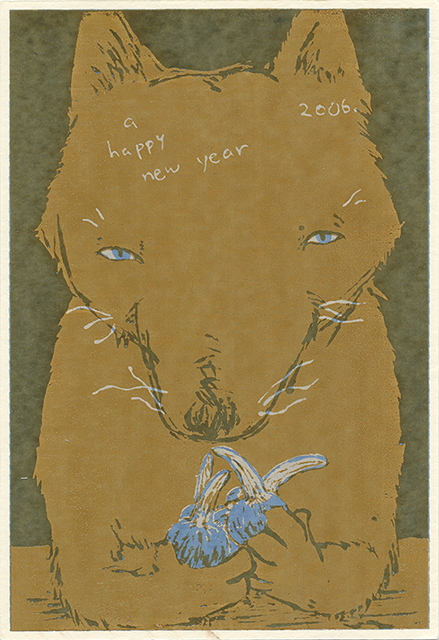 a
happy
new year
2006.